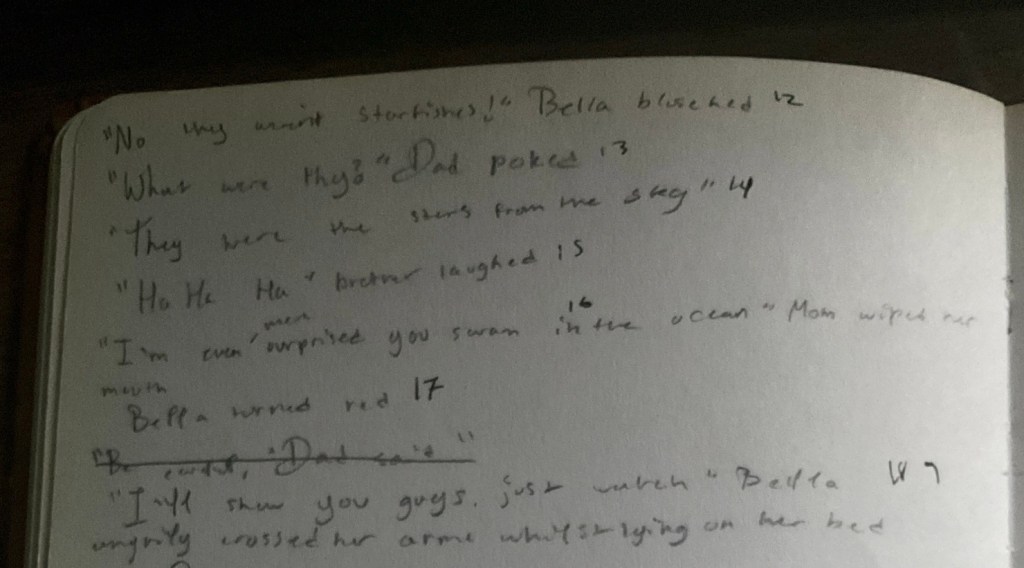 "No they weren't starfishes!" Bella blusched 12
"What were they?" Dad poked 13
"They were the stars from the sky" 14
"Ha Ha Ha" brother laughed 15
"I'm even more surprised you swam in the ocean" Mom wiped her 16
mouth
Bella turned red 17
"Be careful, "Dad said"
"I'll show you guys, just watch" Bella
angrily crossed her arms whilst lying on her bed